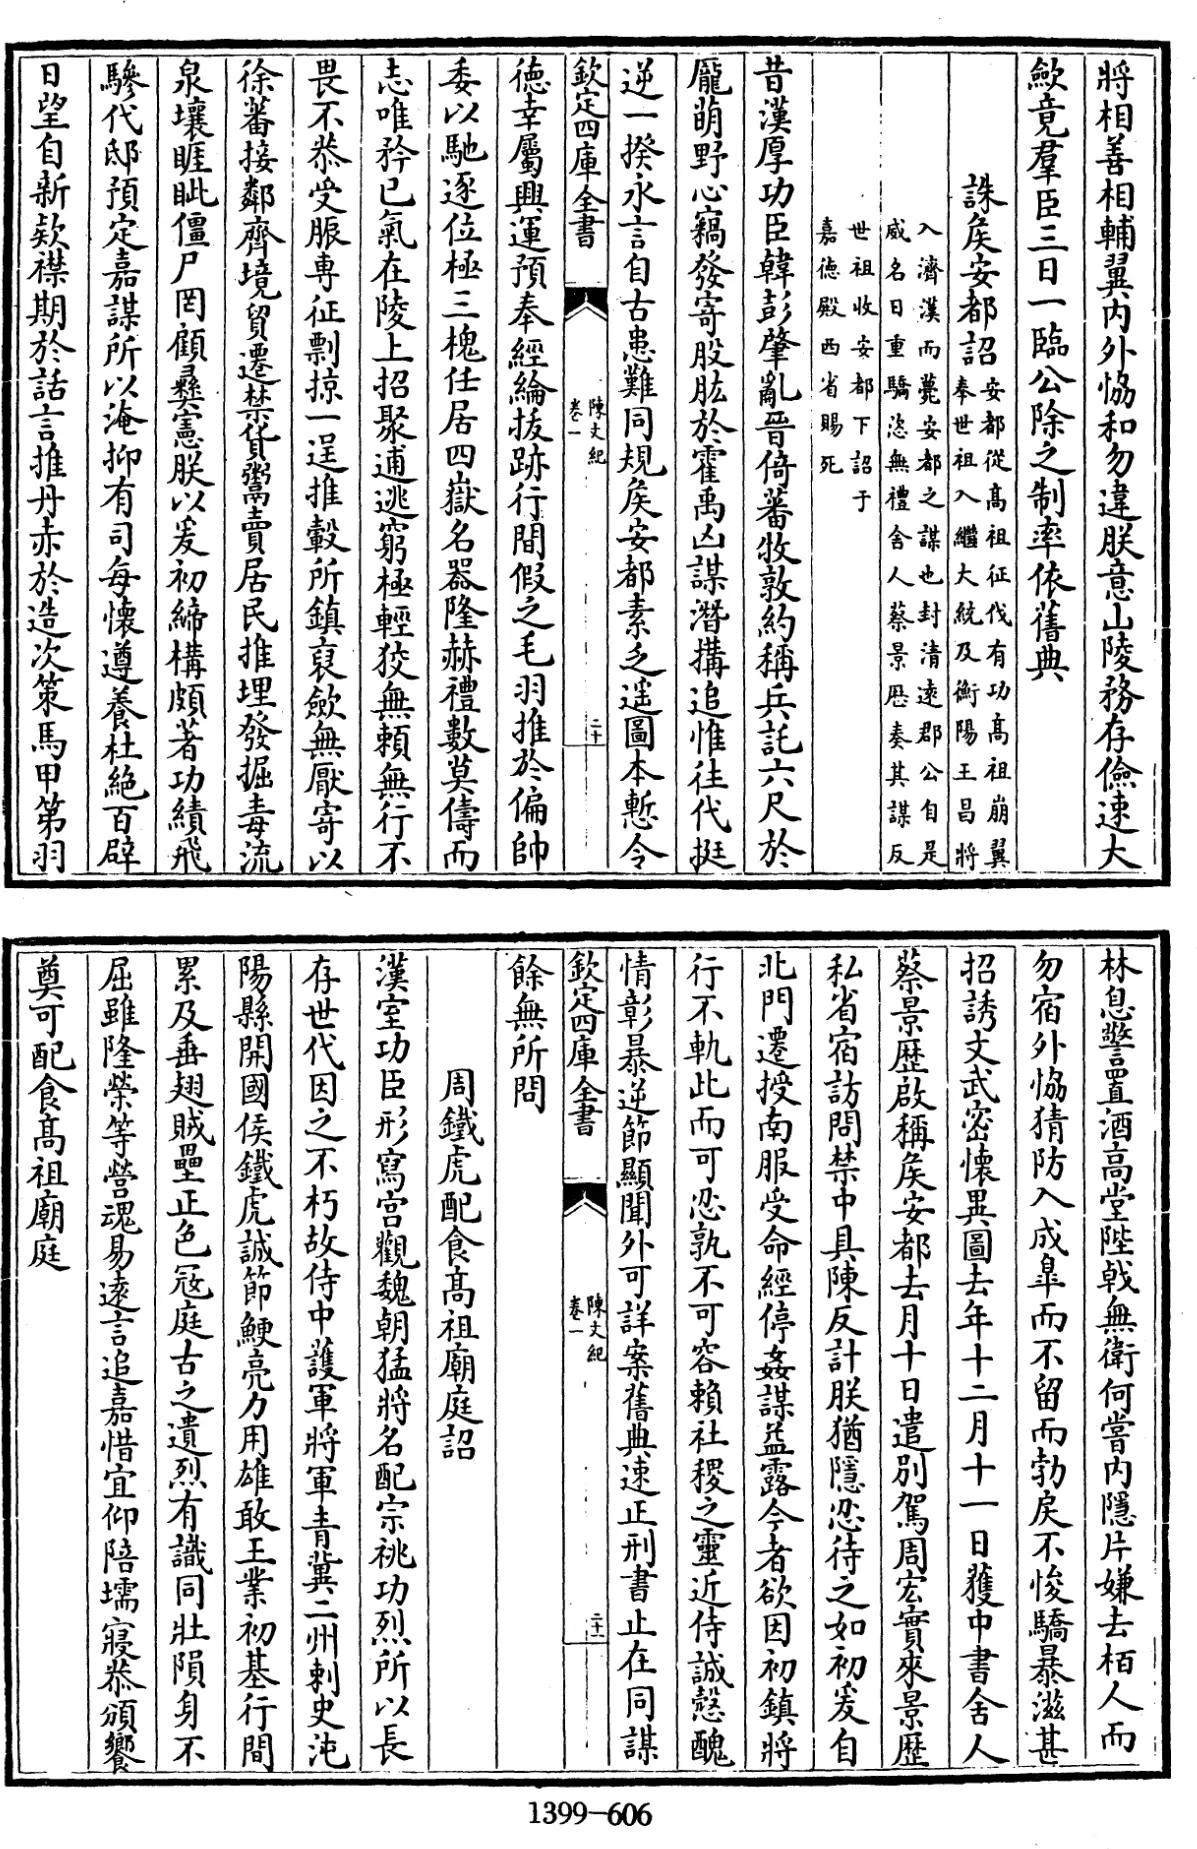 將相善相輔翼内外恊和勿違朕意山陵務存儉速大
歛竟羣臣三日一臨公除之制率依舊典
誅矦安都詔
安都從髙祖征伐有功髙祖崩翼
奉世祖入繼大統及衡陽王昌將
入濟漢而薨安都之謀也封清逺郡公自是
威名日重驕恣無禮舍人蔡景歴奏其謀反
世祖收安都下詔于
嘉德殿西省賜死
昔漢厚功臣韓彭肇亂晉倚蕃牧敦約稱兵託六尺於
龎萌野心竊發寄股肱於霍禹凶謀潛搆追惟往代挺
逆一揆永言自古患難同規矦安都素乏遥圖本慙令
欽定四庫全書
陳文紀
卷一
二十
德幸屬興運預奉經綸拔跡行間假之毛羽推於偏帥
委以馳逐位極三槐任居四嶽名器隆赫禮數莫儔而
志唯矜已氣在陵上招聚逋逃窮極輕狡無頼無行不
畏不恭受脤専征剽掠一逞推轂所鎮裒歛無厭寄以
徐蕃接鄰齊境貿遷禁貨鬻賣居民推埋發掘毒流
泉壤睚眦僵尸罔顧彝憲朕以爰初締構頗著功績飛
驂代邸預定嘉謀所以淹抑有司每懷遵養杜絶百辟
日望自新欵襟期於話言推丹赤於造次策馬甲第羽
林息警置酒高堂陛㦸無衛何嘗内隱片嫌去栢人而
勿宿外恊猜防入成臯而不留而勃戾不悛驕暴滋甚
招誘文武密懷異圖去年十二月十一日獲中書舍人
蔡景歴啟稱矦安都去月十日遣別駕周宏實來景歴
私省宿訪問禁中具陳反計朕猶隱忍待之如初爰自
北門遷授南服受命經停姦謀益露今者欲因初鎮將
行不軌此而可忍孰不可容賴社稷之靈近侍誠慤醜
情彰暴逆節顯聞外可詳案舊典速正刑書止在同謀
欽定四庫全書
陳文紀
卷一
二十一
餘無所問
周鐵虎配食髙祖廟庭詔
漢室功臣形寫宫觀魏朝猛將名配宗祧功烈所以長
存世代因之不朽故侍中護軍將軍青冀二州刺史沌
陽縣開國侯鐵虎誠節鯁亮力用雄敢王業初基行間
累及垂翅賊壘正色冦庭古之遺烈有識同壯隕身不
屈雖隆榮等營魂易逺言追嘉惜宜仰陪壖寢恭頒饗
奠可配食髙祖廟庭
1399-606